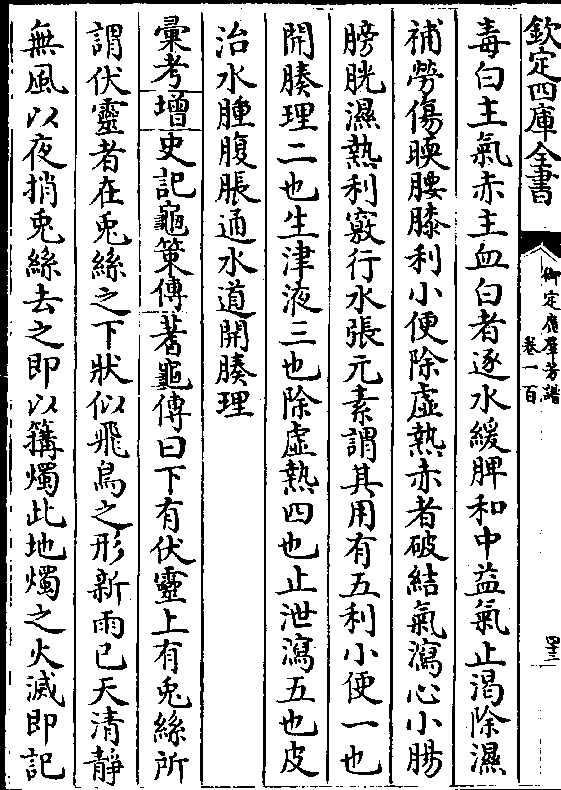 欽定四庫全書
御定廣羣芳譜
卷一百
毒白主氣赤主血白者逐水緩脾和中益氣止渴除濕
補勞傷暖腰膝利小便除虛熱赤者破結氣瀉心小腸
膀胱濕熱利竅行水張元素謂其用有五利小便一也
開腠理二也生津液三也除虛熱四也止泄瀉五也皮
治水腫腹脹通水道開腠理
彚考增史記龜策傳蓍龜傳曰下有伏靈上有兎絲所
謂伏靈者在兎絲之下狀似飛鳥之形新雨已天清靜
無風以夜捎兎絲去之即以籌燭此地燭之火滅即記